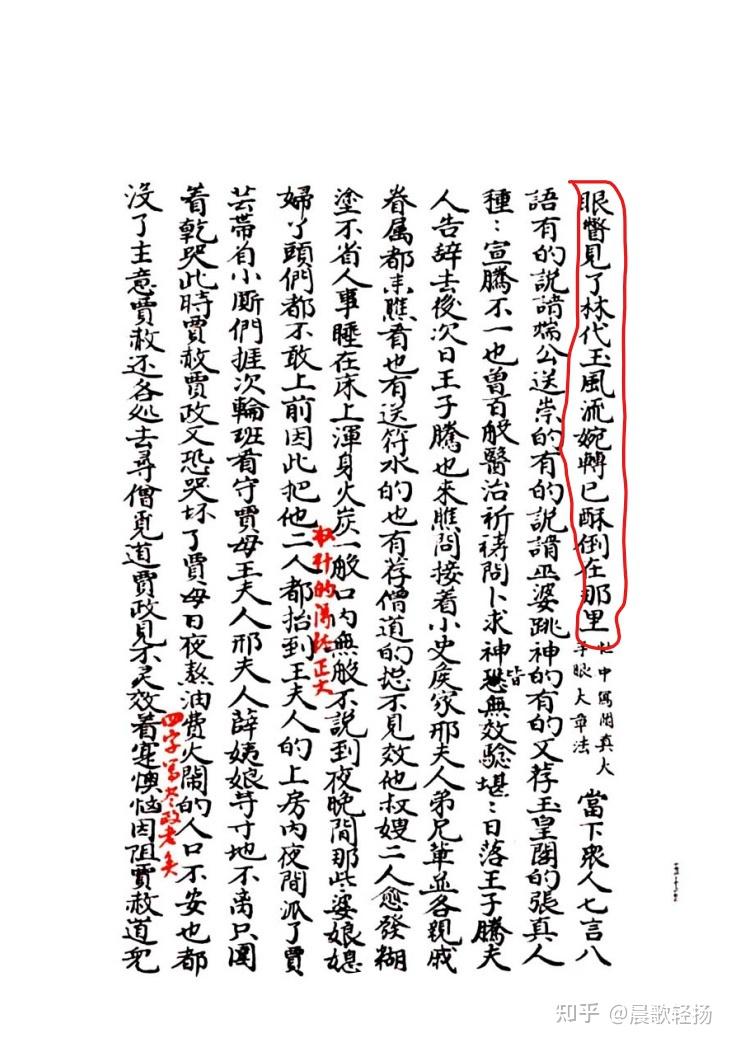 眼瞥見了林代玉風流婉轉已酥倒在那里忙中寫閑真大手眼大章法當下衆人七言八
語有的說請端公送祟的有的說請巫婆跳神的有的又荐玉皇閣的張真人
種：宣騰不一也曽百般醫治祈禱問卜求神皆恐無效驗堪：日落王子騰夫
人告辞去後次日王子騰也來瞧問接着小史矦家邢夫人弟兄軰並各親戚
眷属都来瞧看也有送符水的也有荐僧道的揔不見效他叔嫂二人愈發糊
塗不省人事睡在床上渾身火炭一般口内無般不説到夜晚間那些婆娘媳
婦丫頭們都不敢上前因此把他二人都抬到王夫人的上房内夜間派了賈
芸帶着小厮們捱次輪班看守賈母王夫人邢夫人薛姨娘等寸地不离只圍
着乾哭此時賈赦賈政又恐哭坏了賈母日夜熬油費火鬧的人口不安也都
没了主意賈赦还各処去尋僧覓道賈政見不灵效着寔懊惱因阻賈赦道児
收什的得体正大
四字寫尽政老矣
知乎 @晨歌轻扬